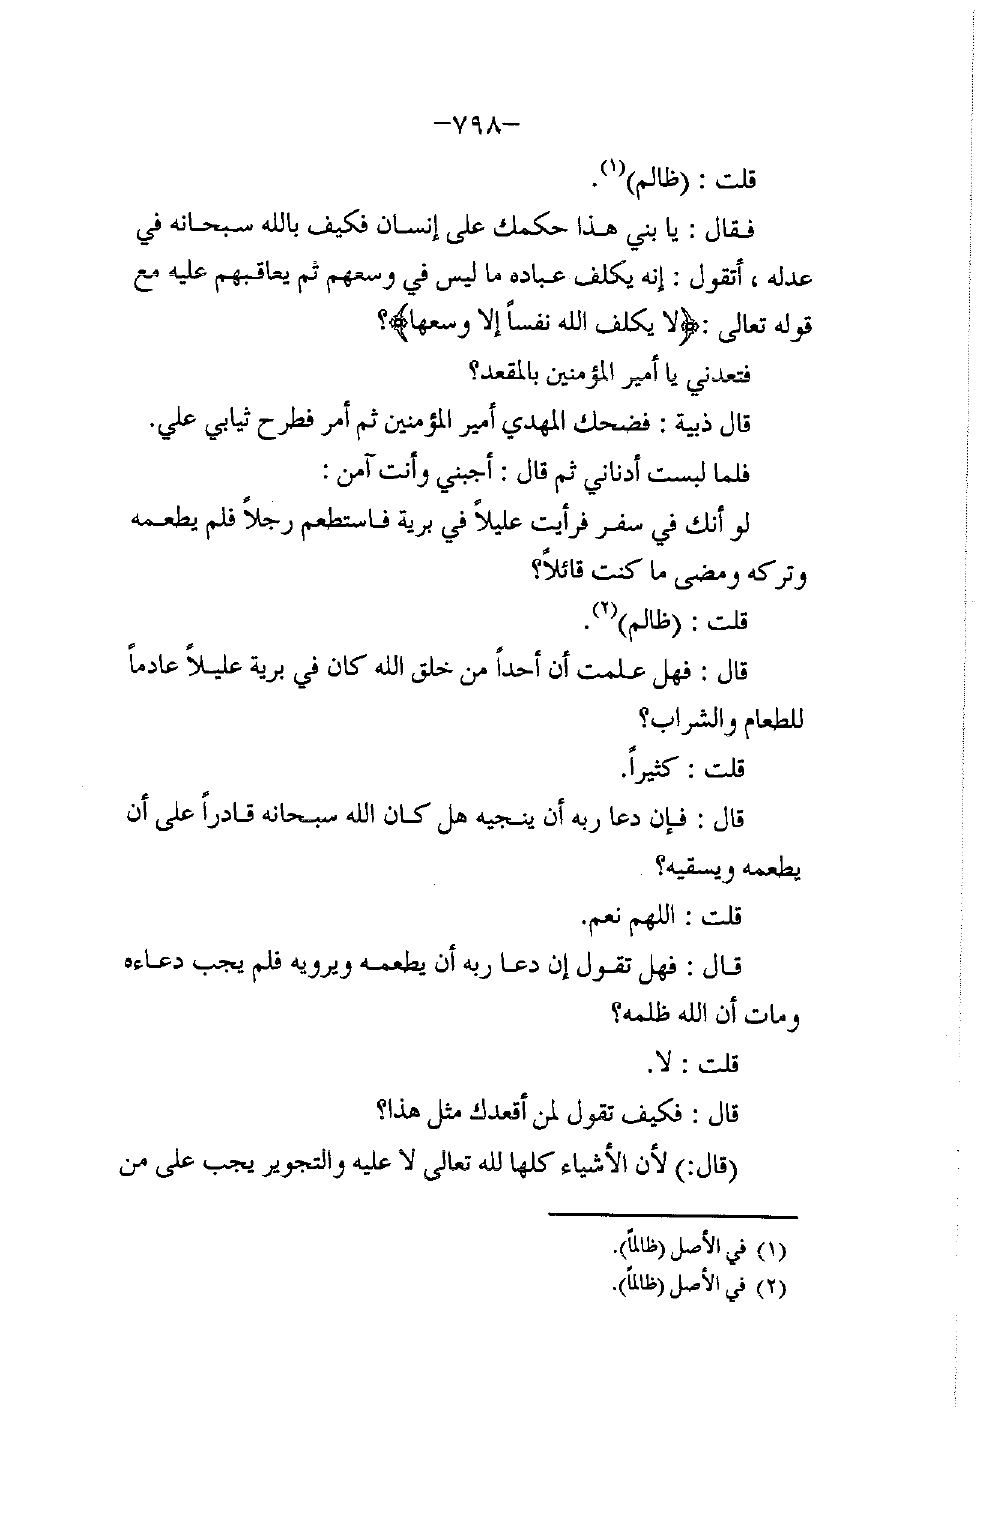 -٧٩٨-
قلت : (ظالم)(١).
فقال : يا بني هذا حكمك على إنسان فكيف بالله سبحانه في
عدله ، أتقول : إنه يكلف عباده ما ليس في وسعهم ثم يعاقبهم عليه مع
قوله تعالى :﴿لا يكلف الله نفساً إلا وسعها﴾؟
فتعدني يا أمير المؤمنين بالمقعد؟
قال ذبية : فضحك المهدي أمير المؤمنين ثم أمر فطرح ثيابي علي.
فلما لبست أدناني ثم قال : أجبني وأنت آمن :
لو أنك في سفر فرأيت عليلاً في برية فاستطعم رجلاً فلم يطعمه
وتركه ومضى ما كنت قائلاً؟
قلت : (ظالم)(٢).
قال : فهل علمت أن أحداً من خلق الله كان في برية عليلاً عادماً
للطعام والشراب؟
قلت : كثيراً.
قال : فإن دعا ربه أن ينجيه هل كان الله سبحانه قادراً على أن
يطعمه ويسقيه؟
قلت : اللهم نعم.
قال : فهل تقول إن دعا ربه أن يطعمه ويرويه فلم يجب دعاءه
ومات أن الله ظلمه؟
قلت : لا.
قال : فكيف تقول لمن أقعدك مثل هذا؟
(قال:) لأن الأشياء كلها لله تعالى لا عليه والتجوير يجب على من
(١) في الأصل (ظالماً).
(٢) في الأصل (ظالماً).